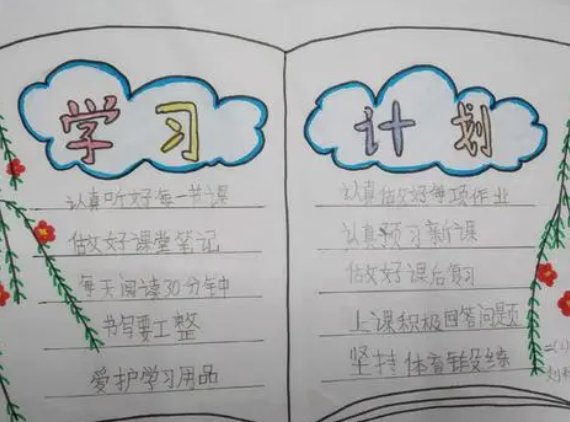 学习
认真听好每一节课
做好课堂笔记
每天阅读30分钟
书写要工整
爱护学习用品
计划
认真做好每项作业
认真预习新课
做好课后复习
上课积极回答问题
坚持体育锻练
二(2)